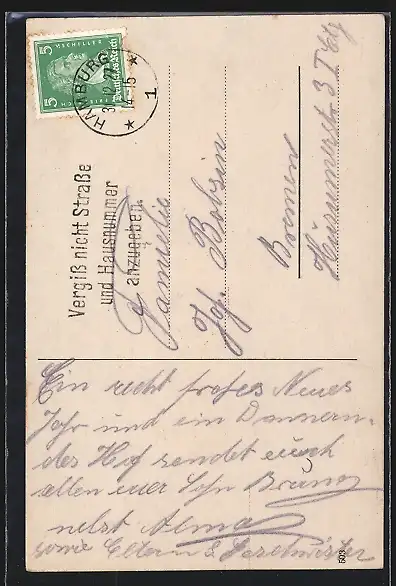 5 SCHILLER 5
Deutsches Reich
HAMBURG
31.12.27
14-15
* 1 *
Vergiß nicht Straße
und Hausnummer
anzugeben.
Familie
Joh. Bobsin
Bremen
Husumerstr. 3 I Etg
Ein recht frohes Neues
Jahr und ein
sendet euch
allen euer Sohn Bruno
nebst Alma
sowie Eltern & Geschwister
503